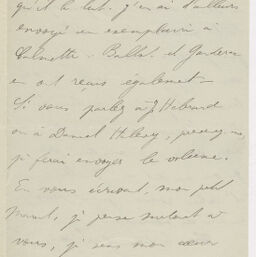 qu'il le lut. j'en ai d'ailleurs
envoyé un exemplaire à
Calmette. Ballot et Ganderax
en ont reçus également
Si vous parlez à J Hebrard
ou à Daniel Halevy,
je ferai envoyer le volume.
En vous écrivant, mon petit
je pense surtout à
vous, je sens mon coeur